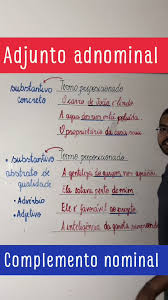 Adjunto adnominal
substantivo
concreto
Termo preposicionado
O carro de João é lindo
A água do
O proprietário da casa
substantivo
abstrato de
qualidade
Advérbio
Adjetivo
Termo preposicionado
A gentileza
Ela estava perto de mim
Ele é favorável ao projeto
A inteligência da garota
Complemento nominal